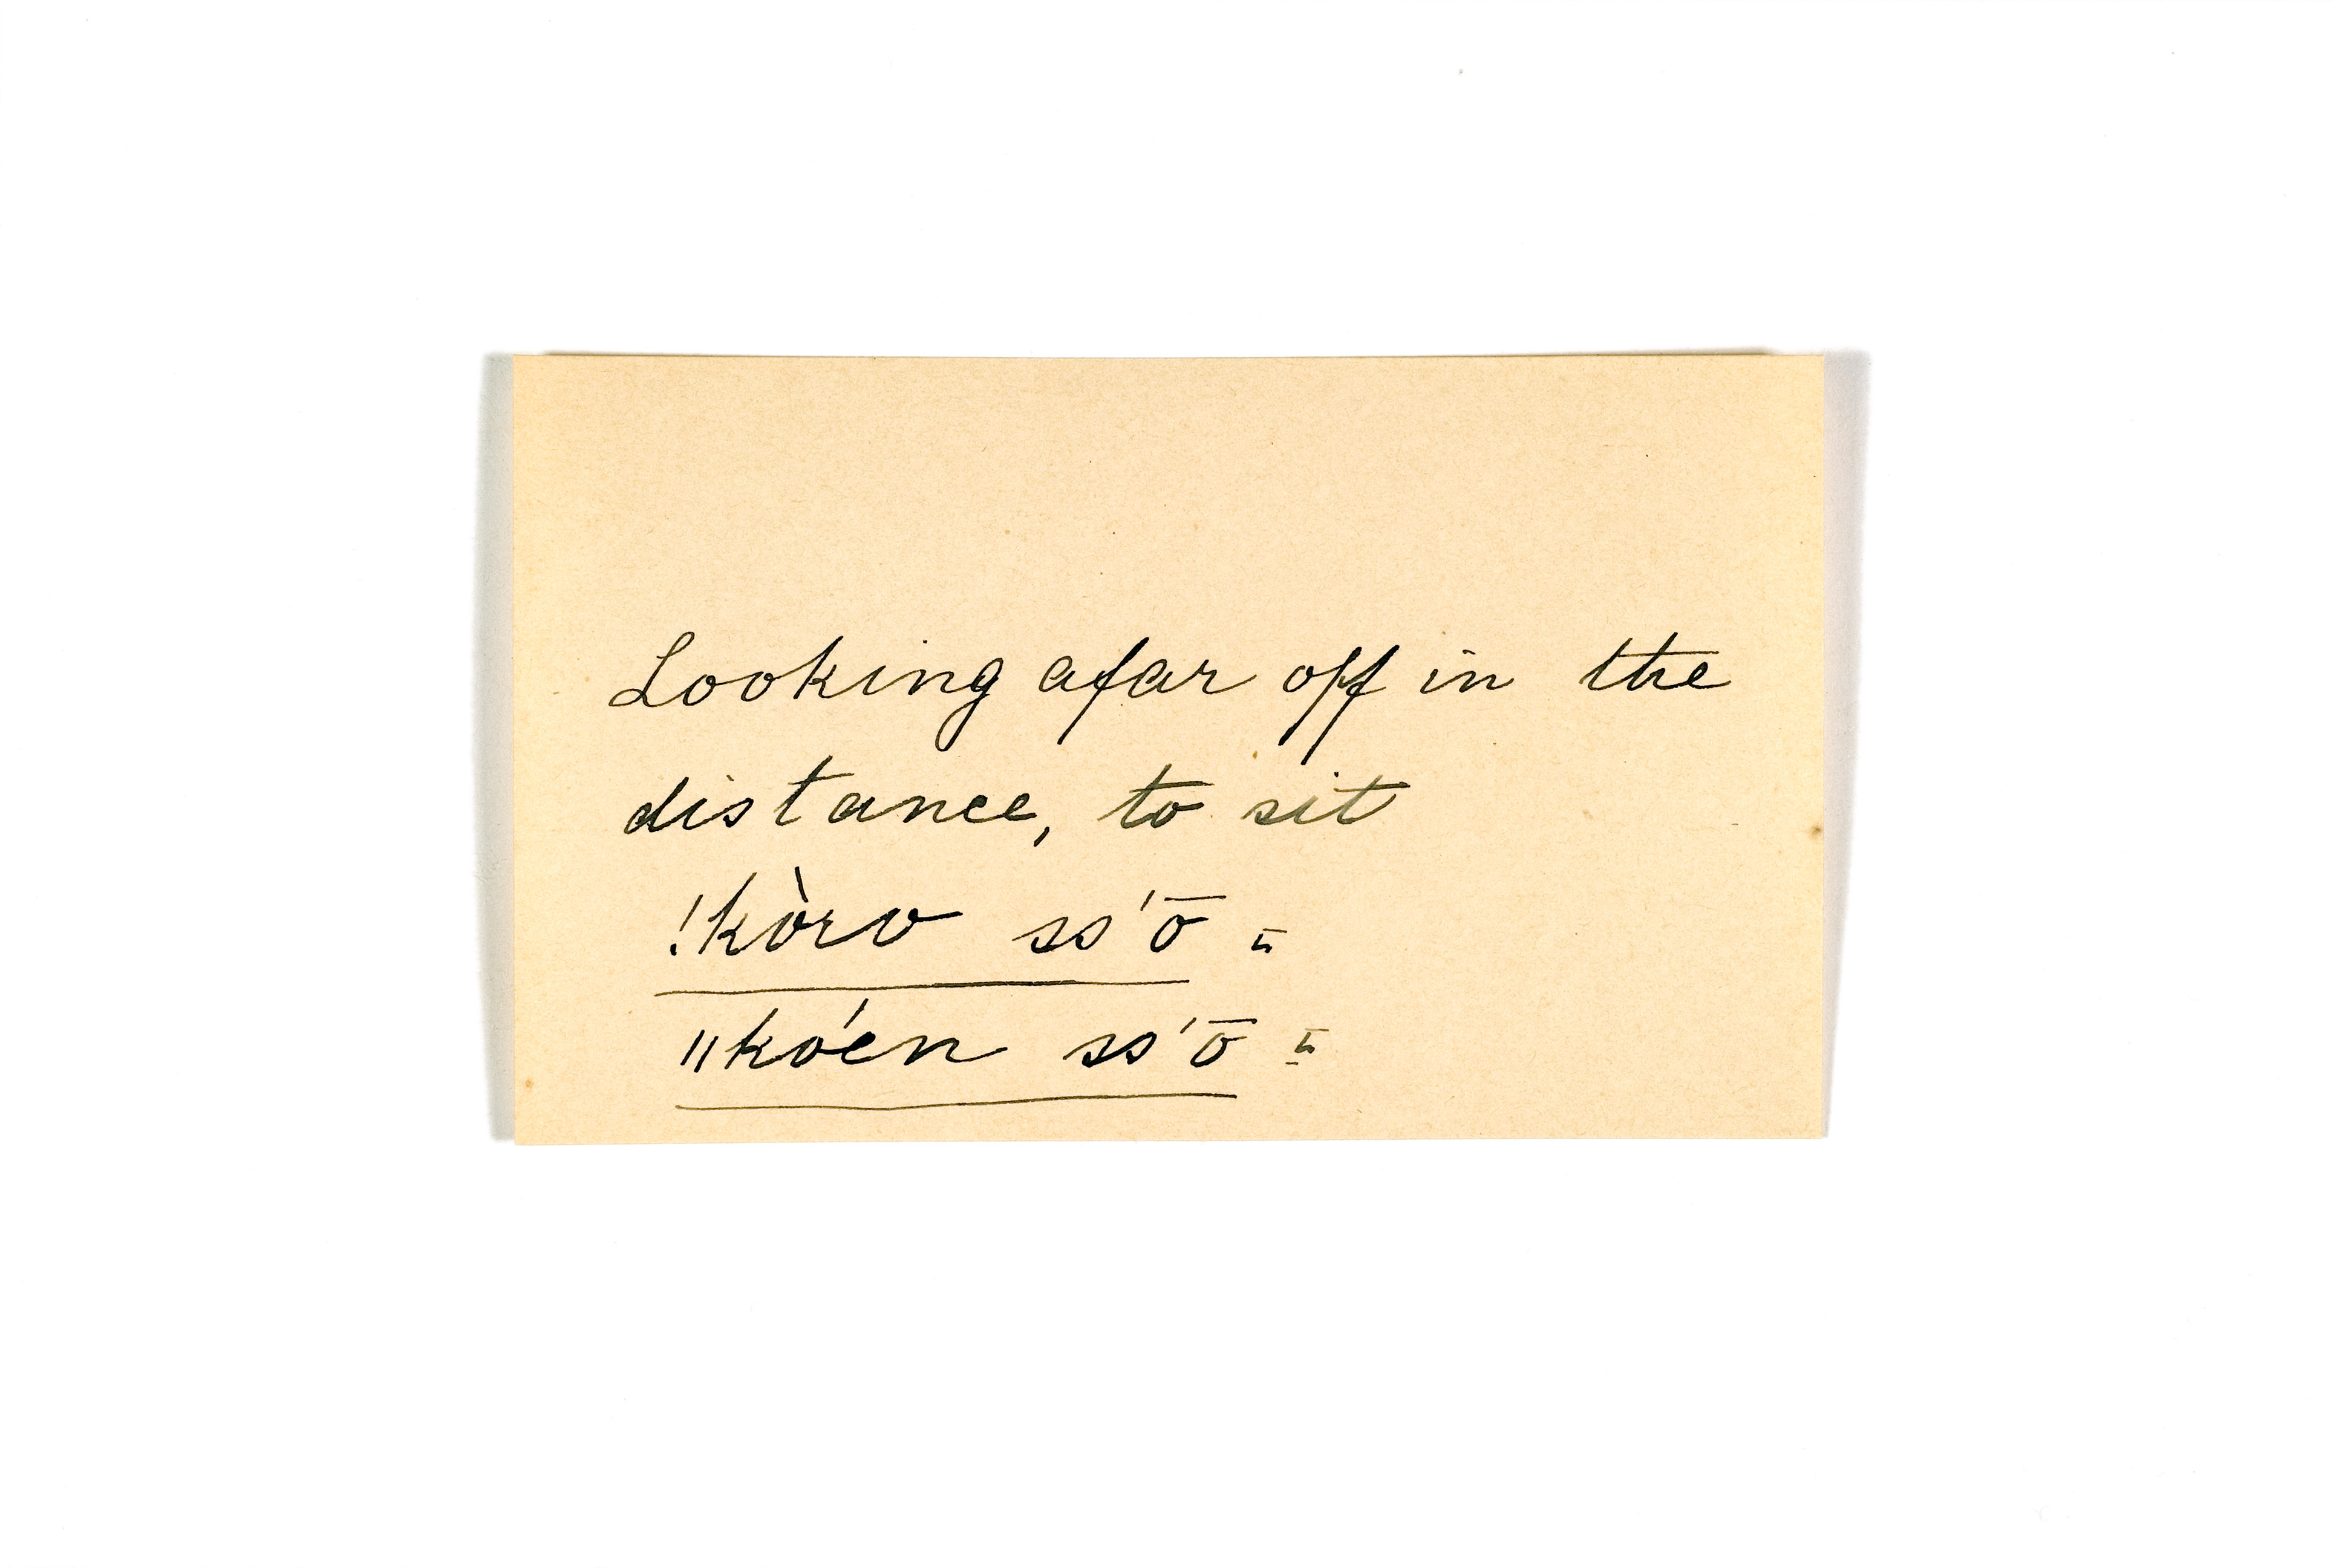 Looking afar off in the
distance, to sit
!kòro ss'ō
ǁkóen ss'ō